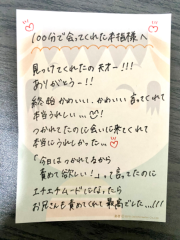 100分で会ってくれた本指様へ
見つけてくれたの天才ー!!!
ありがとうー!!
終始かわいい、かわいい言ってくれて
本当うれしい...♡!
つかれてたのに会いに来てくれて
本当にうれしかった...♡
「今日はつかれてるから
責めて欲しい!」って言ってたのに
エチエチムードになったら
お兄さんも責めてくれて最高でした...!!!